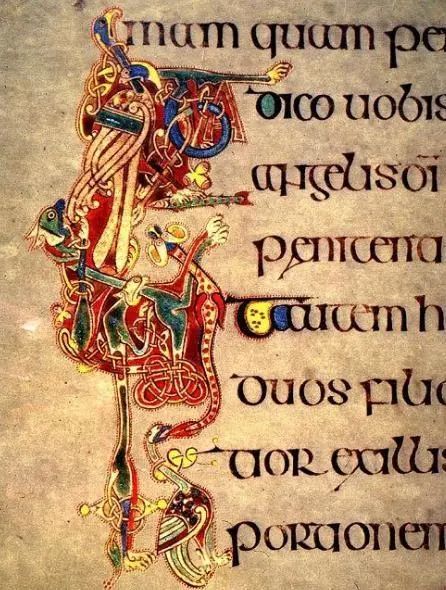 mam quam pe
dico uobis
angelis dī
penitenti
t autem h
duos filio
tior ex illis
portionem